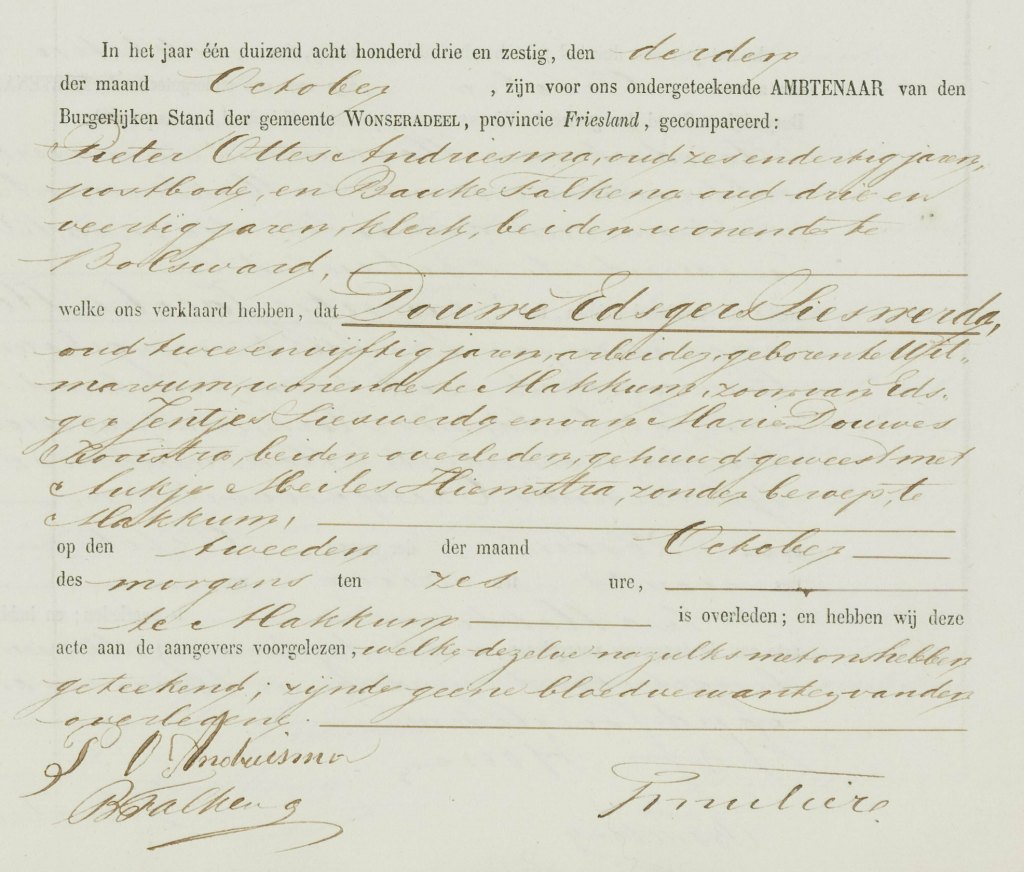 In het jaar één duizend acht honderd drie en zestig, den derden
der maand October, zijn voor ons ondergeteekende AMBTENAAR van den
Burgerlijken Stand der gemeente WONSERADEEL, provincie Friesland, gecompareerd:
Pieter Ottes Andriesma, oud zes en dertig jaren,
postbode, en Bauke Falkena oud drie en
veertig jaren, klerk, beiden wonende te
Bolsward,
welke ons verklaard hebben, dat Douwe Edsgers Sieswerda,
oud twee en vijftig jaren, arbeider, geboren te Wit-
marsum, wonende te Makkum, zoon van Eds-
ger Jentjes Sieswerda en van Marie Douwes
Kooistra, beiden overleden, gehuwd geweest met
Aukje Meiles Hiemstra, zonder beroep, te
Makkum,
op den tweeden der maand October
des morgens ten zes ure,
te Makkum is overleden; en hebben wij deze
acte aan de aangevers voorgelezen, welke dezelve na zulks met ons hebben
geteekend; zijnde geene bloedverwanten van den
overledene.
P O Andriesma
B Falkena